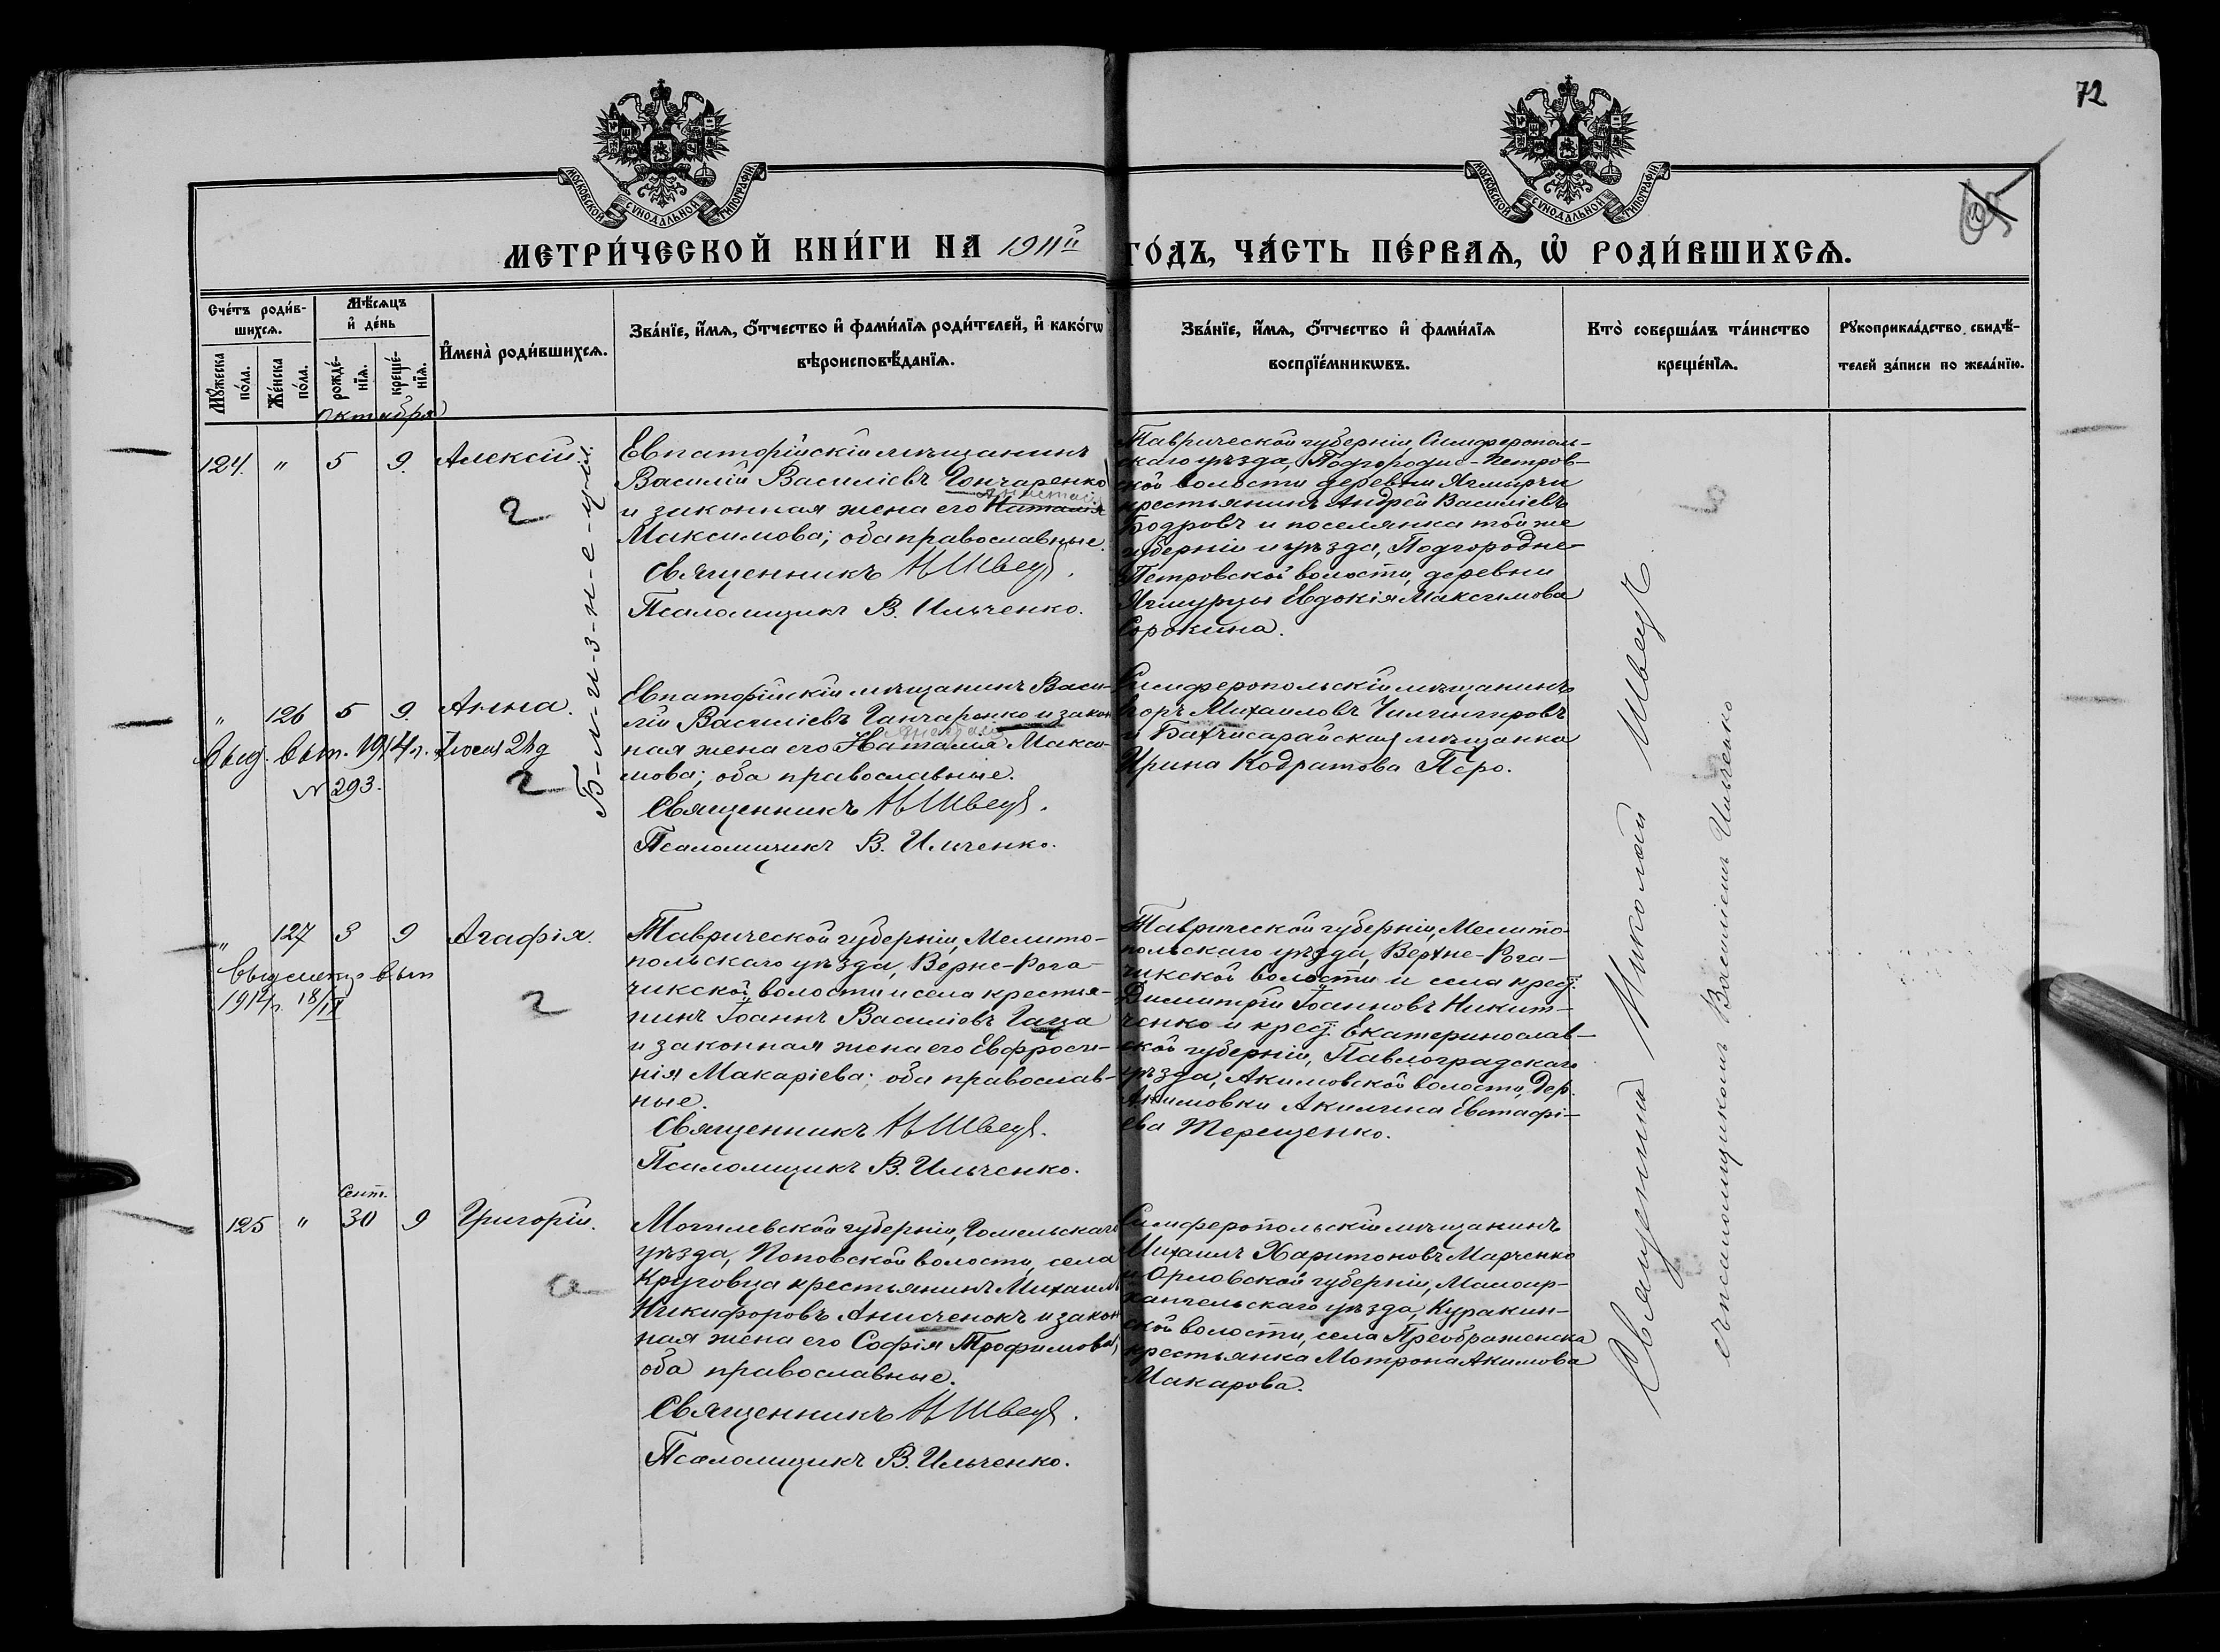 72
МОСКОВСКОЙ СѴНОДАЛЬНОЙ ТИПОГРАФІИ
МОСКОВСКОЙ СѴНОДАЛЬНОЙ ТИПОГРАФІИ
МЕТРИ́ЧЕСКОЙ КНИ́ГИ НА 1911й ГО́ДЪ, ЧА́СТЬ ПЕ́РВАѦ, Ѡ҆ РОДИ́ВШИХСѦ.
Сче́тъ роди́в-
шихсѧ.
Мꙋ́жеска по́ла.
Же́нска по́ла.
Мѣ́сѧцъ
и҆ де́нь
рожде́-
нїѧ.
креще́-
нїѧ.
И҆мена̀ роди́вшихсѧ.
Зва́нїе, и҆́мѧ, ѻ҆́тчество и҆ фами́лїѧ роди́телей, и҆ како́гѡ
вѣроисповѣ́данїѧ.
Зва́нїе, и҆́мѧ, ѻ҆́тчество и҆ фами́лїѧ
воспрїе́мникѡвъ.
Кто̀ соверша́лъ та́инство
креще́нїѧ.
Рꙋкоприкла́дство свидѣ́-
телей за́писи по жела́нїю.
Октября
124. " 5 9. Алексій.
2
Б-л-и-з-н-е-ц-ы.
Евпаторійскій мѣщанинъ
Василій Василіевъ Гончаренко
Анастасія
и законная жена его Наталія
Максимова; оба православные.
Священникъ Н Швецъ.
Псаломщикъ В. Ильченко.
Таврической губерніи Симферополь-
скаго уѣзда, Подгородне-Петров-
ской волости деревни
крестьянинъ Андрей Василіевъ
Бодровъ и поселянка той же
губерніи и уѣзда, Подгородне-
Петровской волости, деревни
Евдокія Максимова
Сорокина.
" 126 5 9. Анна.
Выд. вып. 1914 г.
№ 293.
2
Евпаторійскій мѣщанинъ Васи-
лій Василіевъ Ганчаренко и закон
Анастасія
ная жена его Наталія Макси-
мова; оба православные.
Священникъ Н Швецъ.
Псаломщикъ В. Ильченко.
Симферопольскій мѣщанинъ
Егоръ Михаиловъ Чилингировъ
и Бахчисарайская мѣщанка
Ирина Кодратова Перо.
" 127 3 9 Агафія.
вып
1912 г. 18/IX
2
Таврической губерніи, Мелито-
польскаго уѣзда, Верне-Рога-
чикской волости и села крестья-
нинъ Іоаннъ Василіовъ Гаца
и законная жена его Евфроси-
нія Макаріева; оба православ-
ные.
Священникъ Н Швецъ.
Псаломщикъ В. Ильченко.
Таврической губерніи, Мелито-
польскаго уѣзда, Верхне-Рога-
чикской волости и села крест.
Димитрій Іоанновъ Никит-
ченко и крест. Екатеринослав-
ской губерніи, Павлоградскаго
уѣзда, Акимовской волости, дер.
Акимовки Акилина Евстафі-
ева Терещенко.
Сент.
125 " 30 9 Григорій.
Могилевской губерніи, Гомельскаго
уѣзда, Поповской волости, села
Круговца крестьянинъ Михаилъ
Никифоровъ Анисченокъ и закон
ная жена его Софія Трофимова,
оба православные.
Священникъ Н Швецъ.
Псаломщикъ В. Ильченко.
Симферопольскій мѣщанинъ
Михаилъ Харитоновъ Марченко
и Орловской губерніи, Малоар-
хангельскаго уѣзда, Куракин-
ской волости, села Преображенска
крестьянка Мотрона Акимова
Макарова.
Священникъ Николай Швецъ
съ псаломщикомъ Василіемъ Ильченко